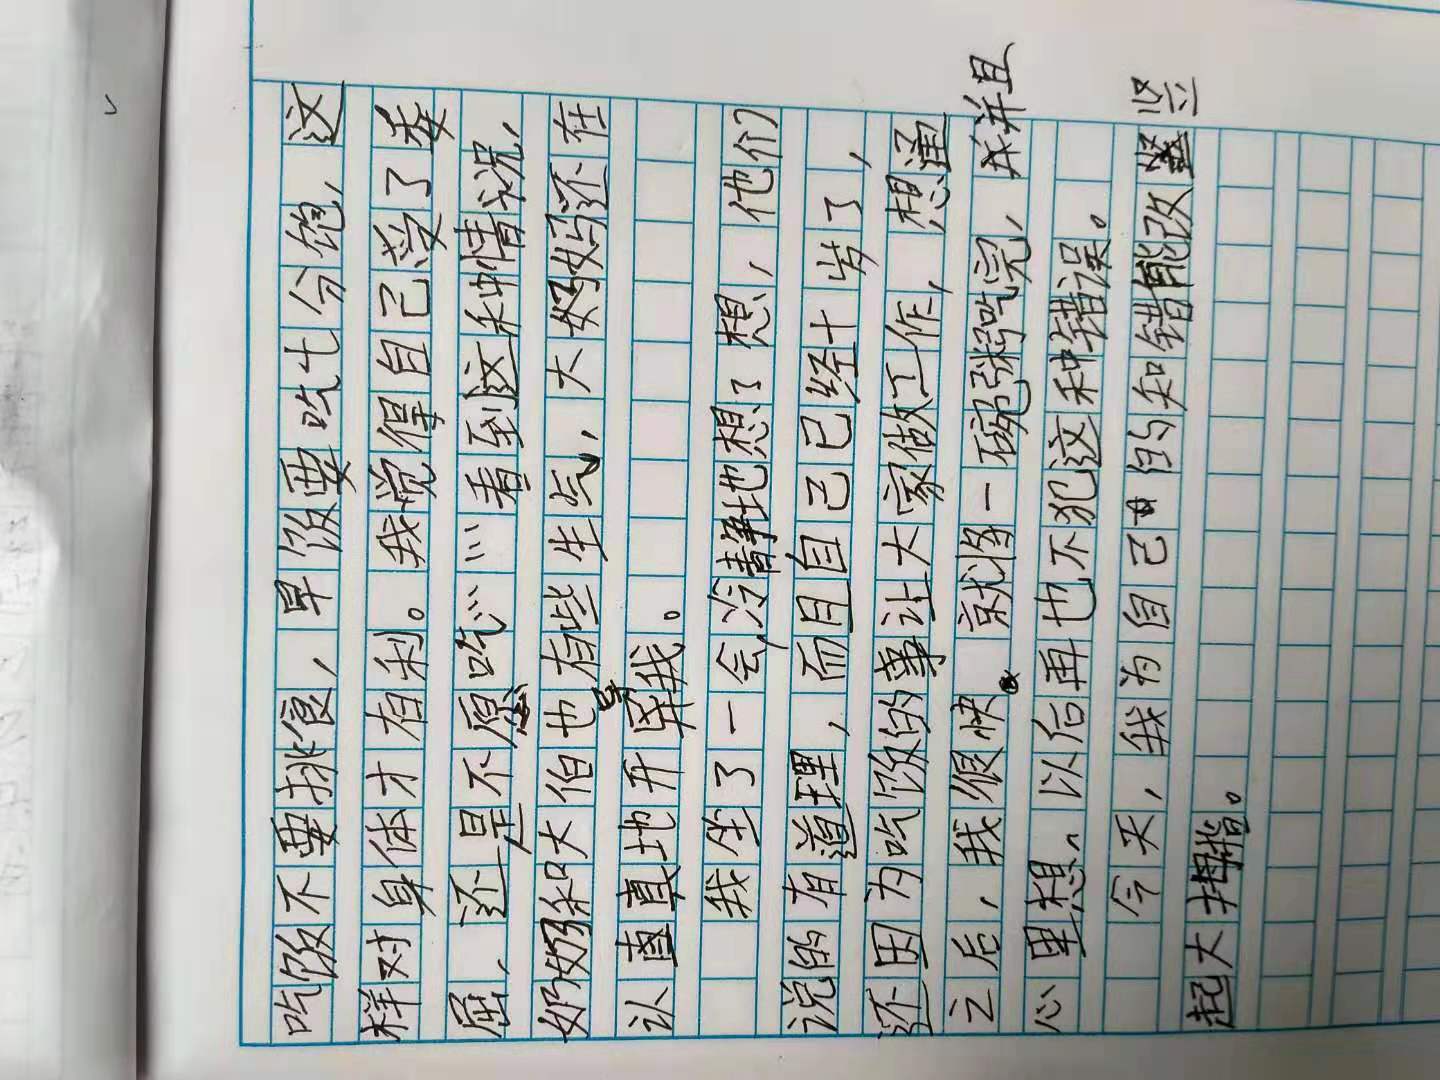 吃饭不要挑食，早饭要吃七分饱，这
样对身体才有利。我觉得自己受了委
屈，还是不愿吃……看到这种情况，
奶奶和大伯也有些生气，大妈妈还在
认真真地开导我。
我坐了一会，冷静地想了想，他们
说的有道理，而且自己已经十岁了，
还因为吃饭的事让大家做工作，想通
之后，我很快就将一碗粥吃完，并且
心里想，以后再也不犯这种错误。
今天，我为自己的知错能改竖
起大拇指。